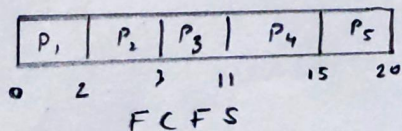 P₁ P₂ P₃ P₄ P₅
0 2 3 11 15 20
FCFS